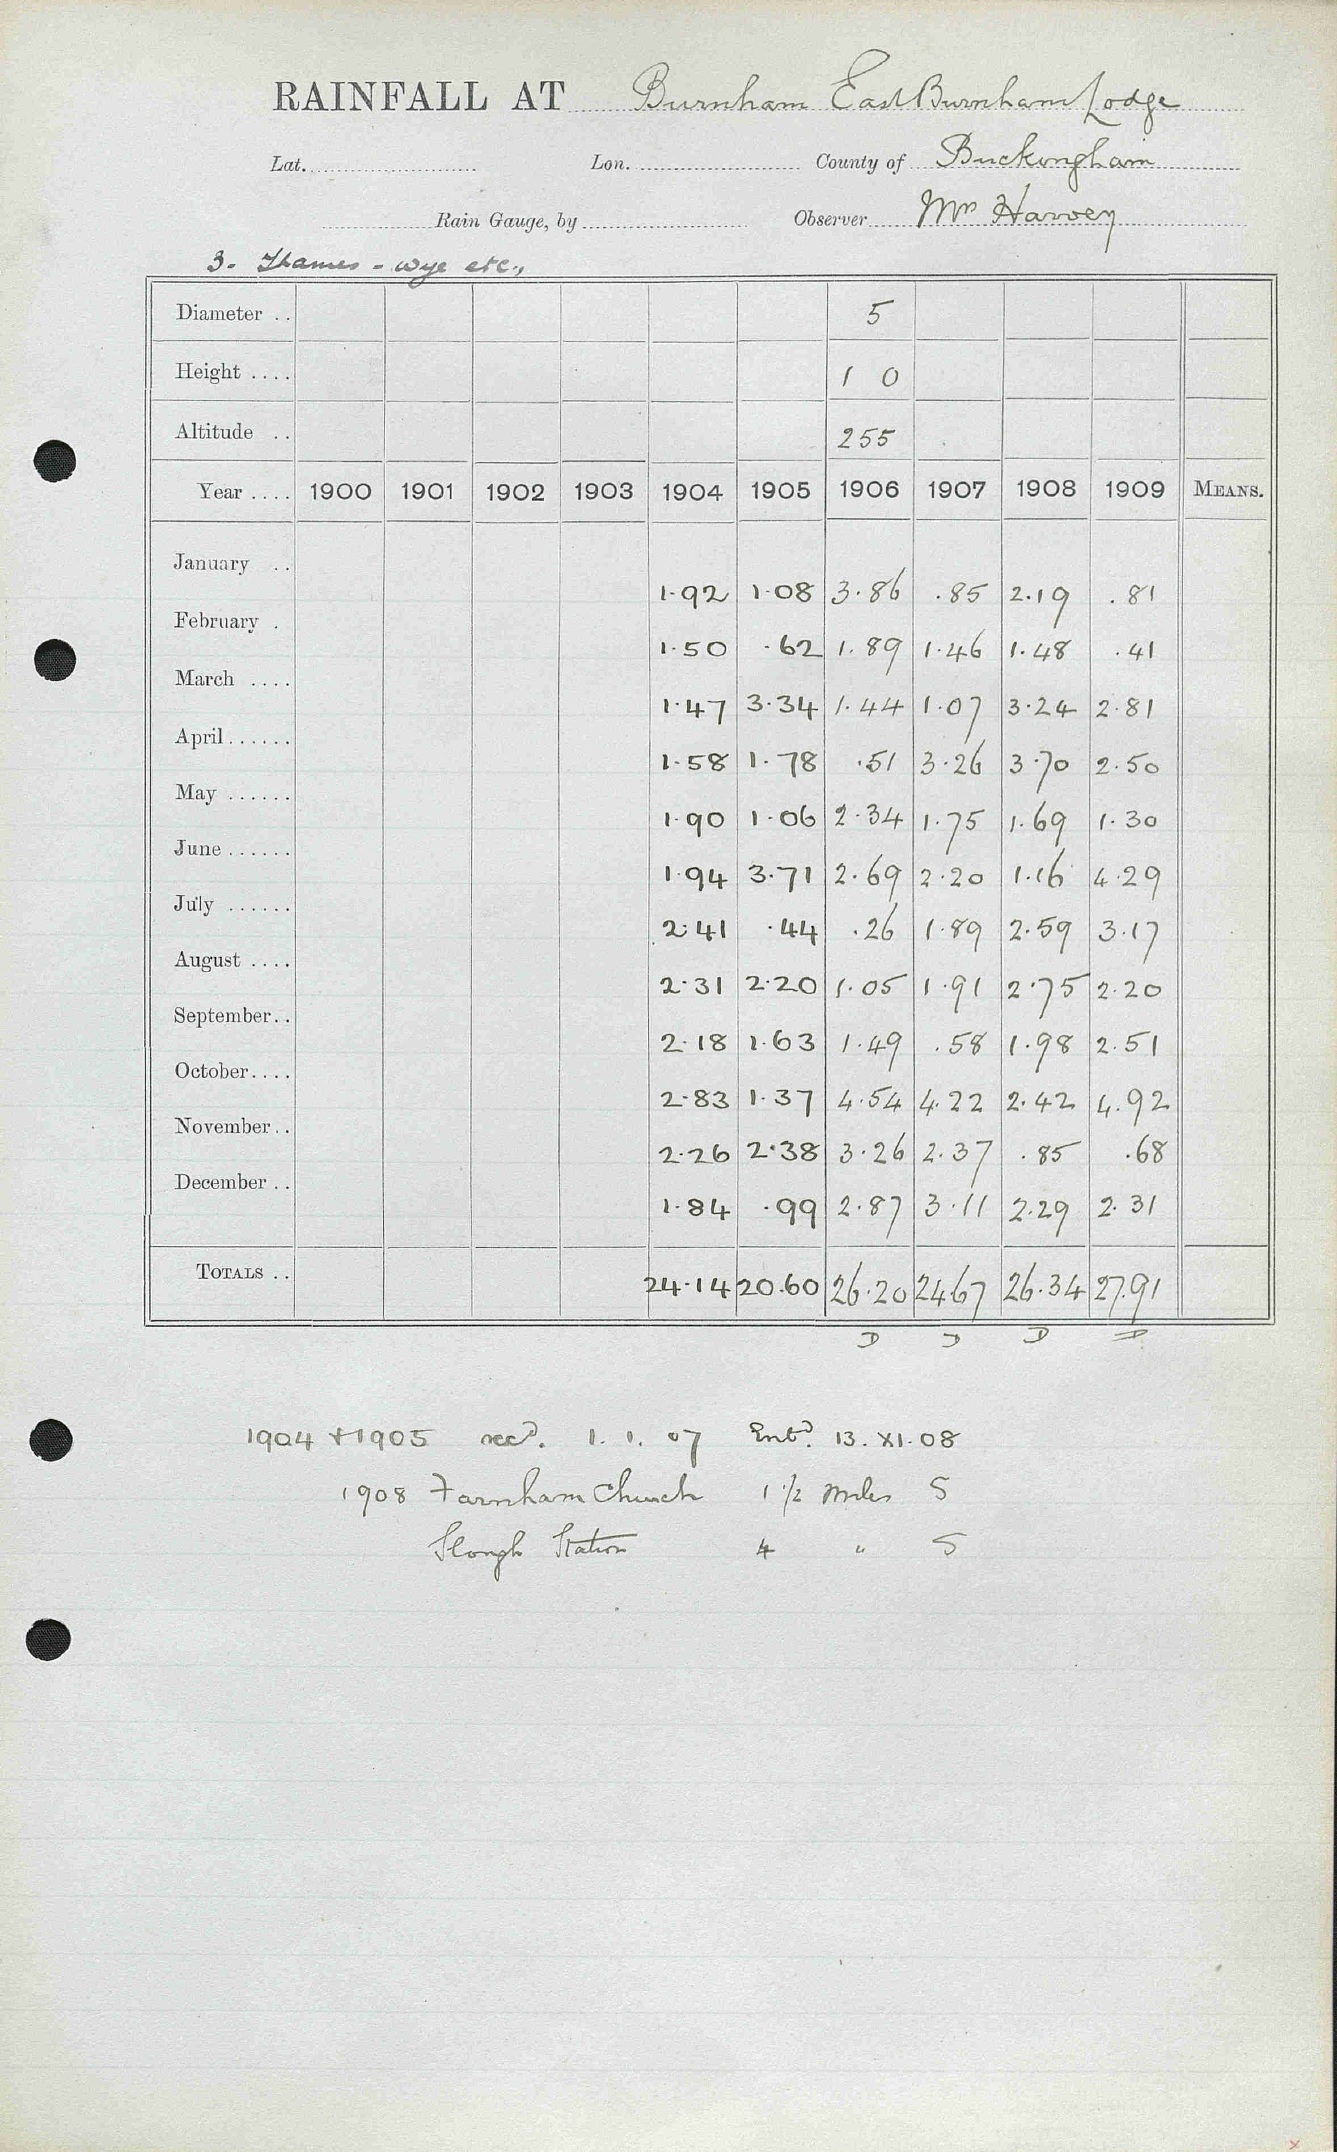 RAINFALL AT Burnham East Burnham Lodge
Lat. Lon. County of Buckingham
Rain Gauge, by Observer Mrs Harvey
3. Thames - Wye etc.,
Diameter .. 5
Height .... 1 0
Altitude .. 255
Year .... 1900 1901 1902 1903 1904 1905 1906 1907 1908 1909 MEANS.
January .. 1.92 1.08 3.86 .85 2.19 .81
February . 1.50 .62 1.89 1.46 1.48 .41
March .... 1.47 3.34 1.44 1.07 3.24 2.81
April ...... 1.58 1.78 .51 3.26 3.70 2.50
May ...... 1.90 1.06 2.34 1.75 1.69 1.30
June ...... 1.94 3.71 2.69 2.20 1.16 4.29
July ...... 2.41 .44 .26 1.89 2.59 3.17
August .... 2.31 2.20 1.05 1.91 2.75 2.20
September.. 2.18 1.63 1.49 .58 1.98 2.51
October.... 2.83 1.37 4.54 4.22 2.42 4.92
November.. 2.26 2.38 3.26 2.37 .85 .68
December .. 1.84 .99 2.87 3.11 2.29 2.31
TOTALS .. 24.14 20.60 26.20 24.67 26.34 27.91
D D D D
1904 + 1905 recd. 1. 1. 07 Entd. 13. XI. 08
1908 Farnham Church 1 1/2 miles S
Slough Station 4 " S